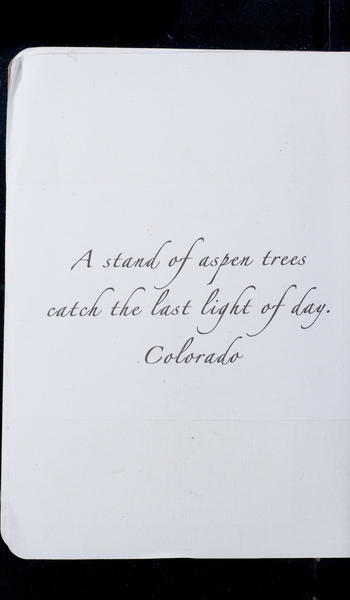 A stand of aspen trees
catch the last light of day.
Colorado